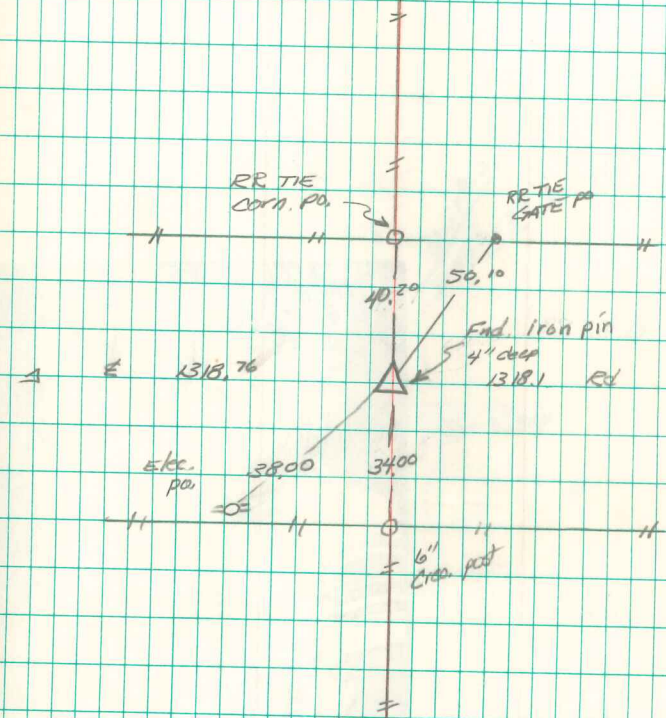 RR TIE
corn. po.
RR TIE
GATE po
50.10
40.20
Fnd. iron pin
4" deep
1318.76
1318.1 Rd
Elec.
po.
38.00
34.00
6"
Creo. post